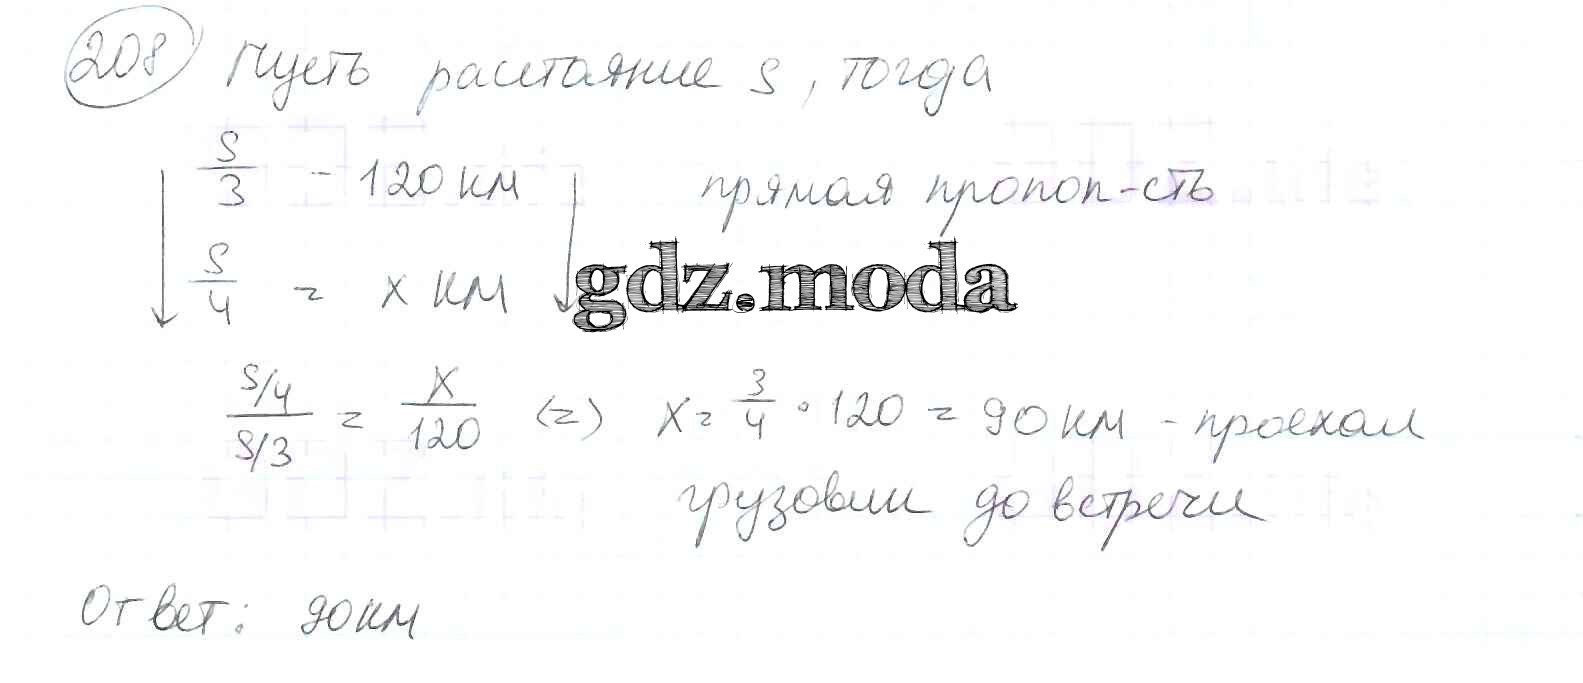 208 Пусть расстояние S, тогда
S/3 - 120 км прямая пропоп-сть
S/4 = x км
gdz.moda
S/4 / S/3 = x/120 (=) x = 3/4 · 120 = 90 км - проехал
грузовик до встречи
Ответ: 90 км